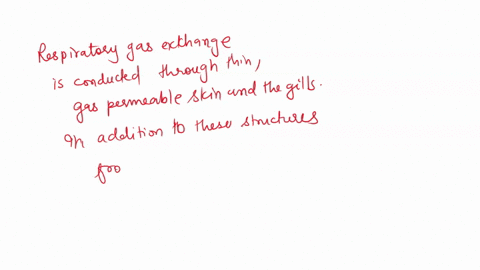 Respiratory gas exchange
is conducted through thin,
gas permeable skin and the gills.
In addition to these structures
fro